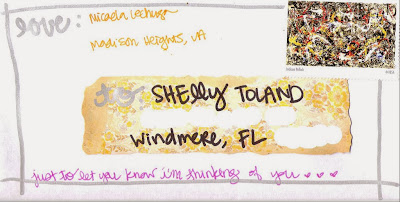 love: Micaela Lechuga
Madison Heights, VA
to: SHElly TOLAND
WindmERE, FL
just to let you know i'm thinking of you